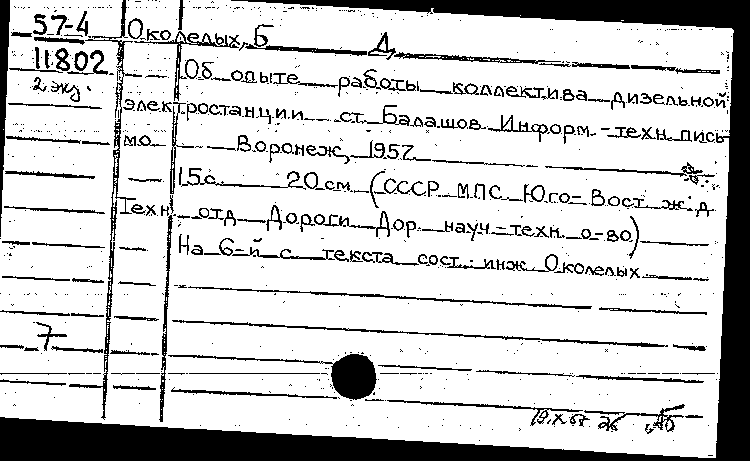 57-4 Околелых, Б Д,
11802 Об опыте работы коллектива дизельной
2 экз. электростанции ст. Балашов Информ.-техн. пись-
мо Воронеж, 1957
15с 20см (СССР МПС Юго-Вост ж.д
Техн отд Дороги Дор науч-техн о-во)
На 6-й с текста сост: инж Околелых
7
19.X 57